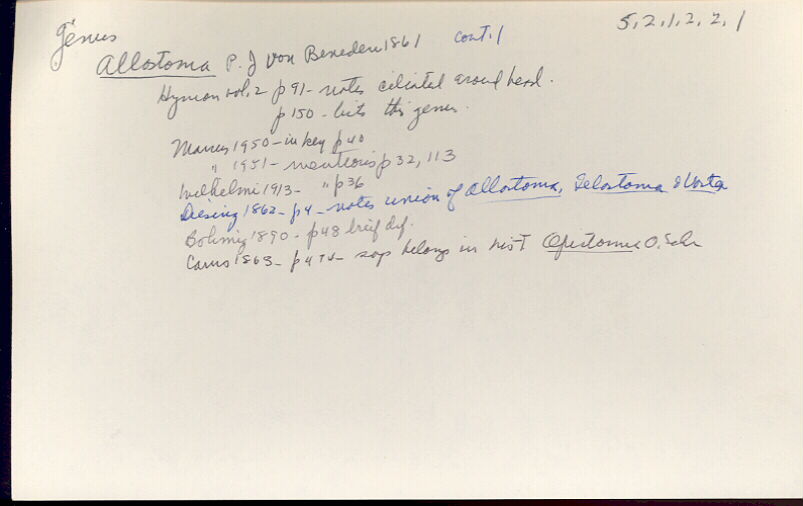 Genus 5,2,1,2,2,1
Allostoma P. J von Beneden 1861 cont. 1
Hyman vol. 2 p 91 - notes ciliated around head.
p 150 - lists this genus.
Marcus 1950 - in key p 40
" 1951 - mentions p 32, 113
Wilhelmi 1913 - " p 36
Diesing 1862 - p 4 - notes union of Allostoma, Telostoma & Vortex
Böhmig 1890 - p 48 brief def.
Carus 1863 - p 474 - says belongs in